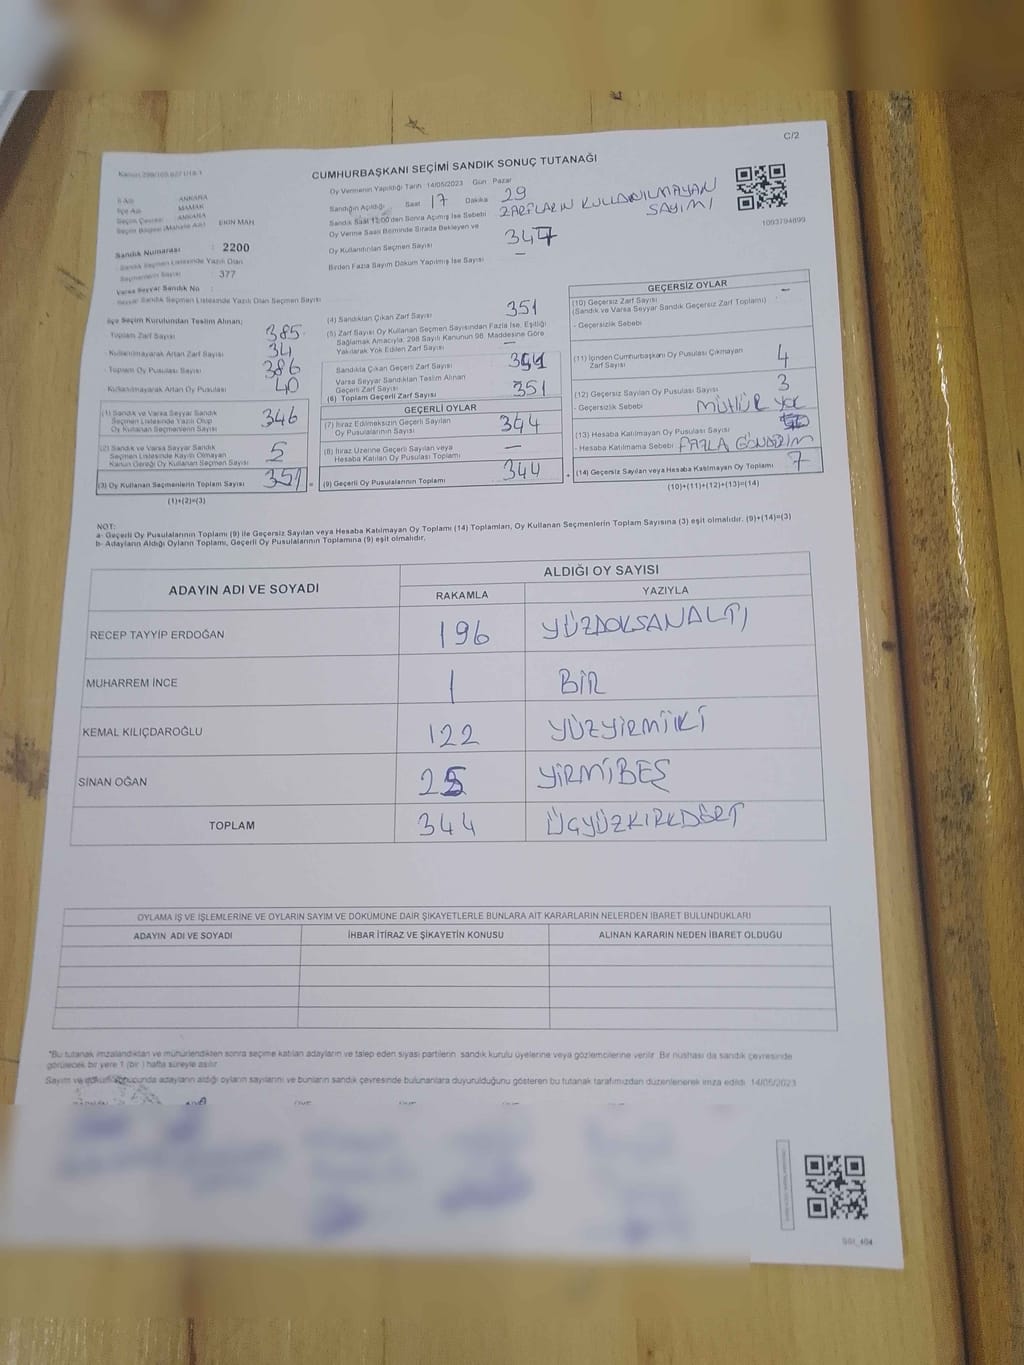 C/2
CUMHURBAŞKANI SEÇİMİ SANDIK SONUÇ TUTANAĞI
İl Adı : ANKARA
İlçe Adı : MAMAK
Seçim Çevresi : ANKARA
Seçim Bölgesi (Mahalle Adı) : EKİN MAH.
Sandık Numarası : 2200
Sandık Seçmen Listesinde Yazılı Olan
Seçmenlerin Sayısı : 377
Varsa Seyyar Sandık No :
Seyyar Sandık Seçmen Listesinde Yazılı Olan Seçmen Sayısı
Oy Vermenin Yapıldığı Tarih 14/05/2023 Gün Pazar
Sandığın Açıldığı Saat 17 Dakika 29
Sandık Saat 17:00'den Sonra Açılmış İse Sebebi ZARFLARIN KULLANILMAYAN SAYIMI
Oy Verme Saati Bitiminde Sırada Bekleyen ve
Oy Kullandırılan Seçmen Sayısı
Birden Fazla Sayım Döküm Yapılmış İse Sayısı –
1093794899
İlçe Seçim Kurulundan Teslim Alınan;
- Toplam Zarf Sayısı 385
- Kullanılmayarak Artan Zarf Sayısı 34
- Toplam Oy Pusulası Sayısı 386
- Kullanılmayarak Artan Oy Pusulası 40
(1) Sandık ve Varsa Seyyar Sandık
Seçmen Listesinde Yazılı Olup
Oy Kullanan Seçmenlerin Sayısı 346
(2) Sandık ve Varsa Seyyar Sandık
Seçmen Listesinde Kayıtlı Olmayan
Kanun Gereği Oy Kullanan Seçmen Sayısı 5
(3) Oy Kullanan Seçmenlerin Toplam Sayısı 351 =
(1)+(2)=(3)
(4) Sandıktan Çıkan Zarf Sayısı 351
(5) Zarf Sayısı Oy Kullanan Seçmen Sayısından Fazla İse, Eşitliği
Sağlamak Amacıyla; 298 Sayılı Kanunun 98. Maddesine Göre
Yakılarak Yok Edilen Zarf Sayısı –
Sandıkta Çıkan Geçerli Zarf Sayısı
Varsa Seyyar Sandıktan Teslim Alınan
Geçerli Zarf Sayısı
(6) Toplam Geçerli Zarf Sayısı 351
GEÇERLİ OYLAR
(7) İtiraz Edilmeksizin Geçerli Sayılan
Oy Pusulalarının Sayısı 344
(8) İtiraz Üzerine Geçerli Sayılan veya
Hesaba Katılan Oy Pusulası Toplamı –
(9) Geçerli Oy Pusulalarının Toplamı 344 +
GEÇERSİZ OYLAR
(10) Geçersiz Zarf Sayısı –
(Sandık ve Varsa Seyyar Sandık Geçersiz Zarf Toplamı)
- Geçersizlik Sebebi
(11) İçinden Cumhurbaşkanı Oy Pusulası Çıkmayan
Zarf Sayısı 4
(12) Geçersiz Sayılan Oy Pusulası Sayısı 3
- Geçersizlik Sebebi MÜHÜR YOK
(13) Hesaba Katılmayan Oy Pusulası Sayısı
- Hesaba Katılmama Sebebi FAZLA GÖNDERİM
(14) Geçersiz Sayılan veya Hesaba Katılmayan Oy Toplamı 7
(10)+(11)+(12)+(13)=(14)
NOT:
a- Geçerli Oy Pusulalarının Toplamı (9) ile Geçersiz Sayılan veya Hesaba Katılmayan Oy Toplamı (14) Toplamları, Oy Kullanan Seçmenlerin Toplam Sayısına (3) eşit olmalıdır. (9)+(14)=(3)
b- Adayların Aldığı Oyların Toplamı, Geçerli Oy Pusulalarının Toplamına (9) eşit olmalıdır.
ADAYIN ADI VE SOYADI ALDIĞI OY SAYISI
RAKAMLA YAZIYLA
RECEP TAYYİP ERDOĞAN 196 YÜZDOKSANALTI
MUHARREM İNCE 1 BİR
KEMAL KILIÇDAROĞLU 122 YÜZYİRMİİKİ
SİNAN OĞAN 25 YİRMİBEŞ
TOPLAM 344 ÜÇYÜZKIRKDÖRT
OYLAMA İŞ VE İŞLEMLERİNE VE OYLARIN SAYIM VE DÖKÜMÜNE DAİR ŞİKAYETLERLE BUNLARA AİT KARARLARIN NELERDEN İBARET BULUNDUKLARI
ADAYIN ADI VE SOYADI İHBAR İTİRAZ VE ŞİKAYETİN KONUSU ALINAN KARARIN NEDEN İBARET OLDUĞU
*Bu tutanak imzalandıktan ve mühürlendikten sonra seçime katılan adayların ve talep eden siyasi partilerin sandık kurulu üyelerine veya gözlemcilerine verilir. Bir nüshası da sandık çevresinde
görülecek bir yere 1 (bir) hafta süreyle asılır.
Sayım ve döküm sonucunda adayların aldığı oyların sayılarını ve bunların sandık çevresinde bulunanlara duyurulduğunu gösteren bu tutanak tarafımızdan düzenlenerek imza edildi. 14/05/2023